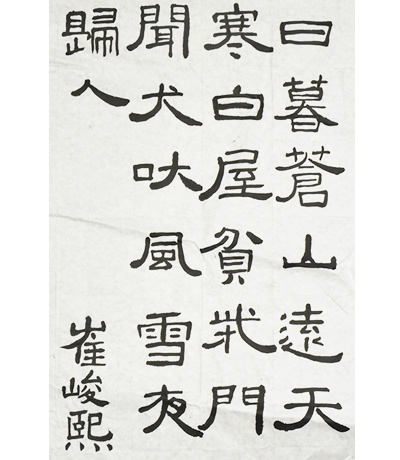 日暮蒼山遠天
寒白屋貧柴門
聞犬吠風雪夜
歸人
崔峻熙